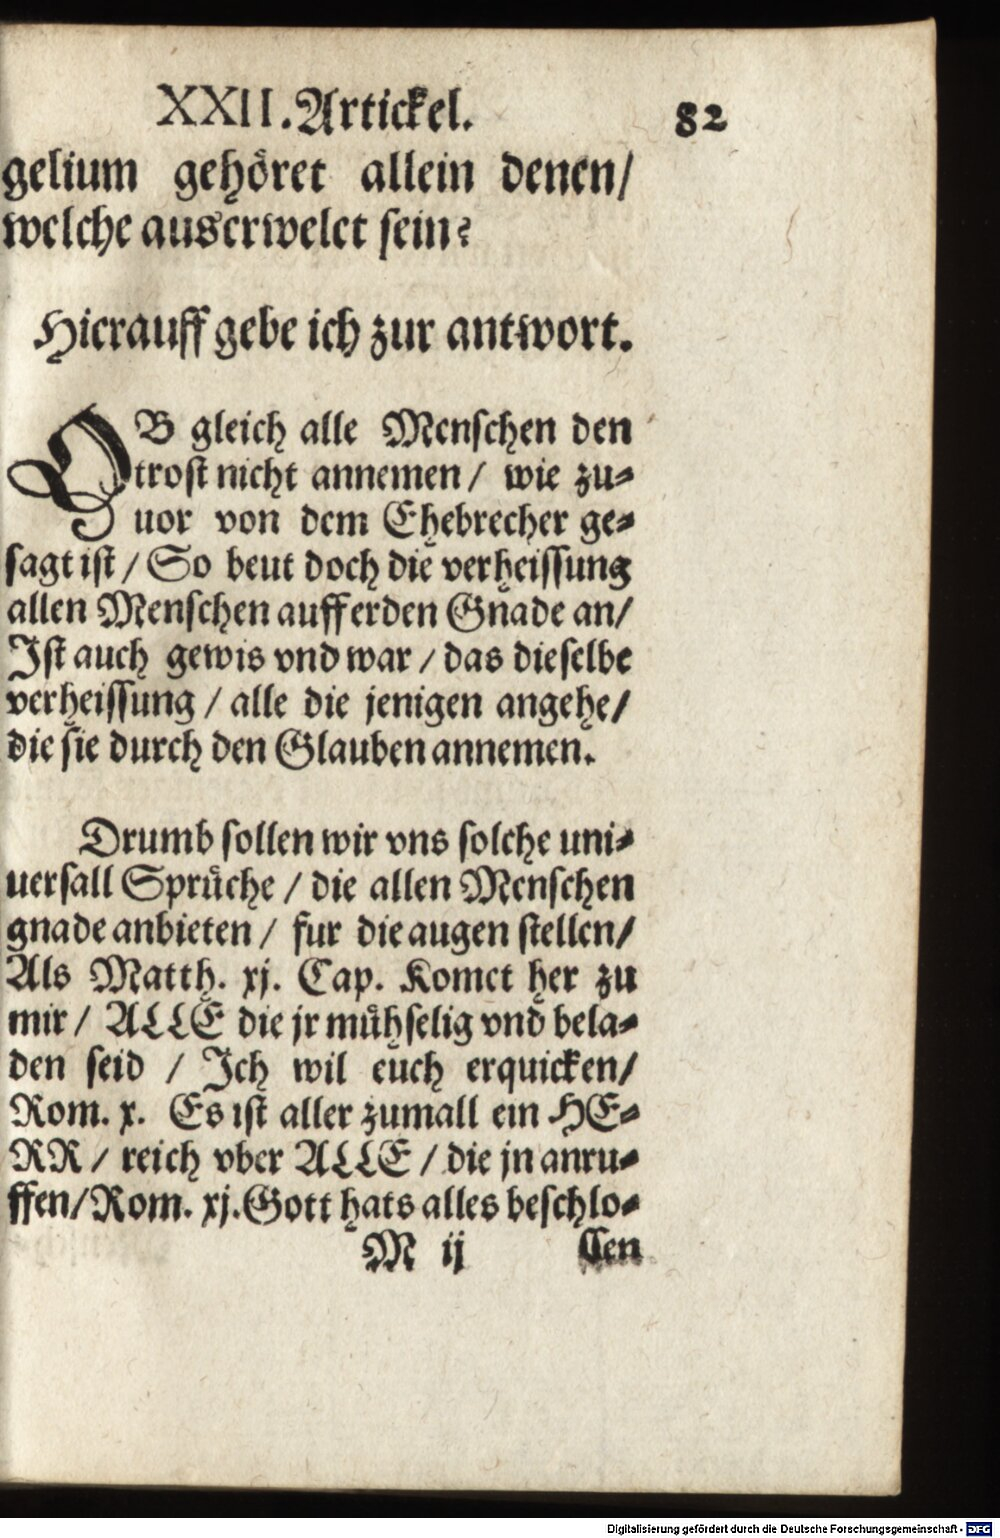 XXII. Artickel. 82
gelium gehöret allein denen/
welche auserwelet sein?
Hierauff gebe ich zur antwort.
OB gleich alle Menschen den
trost nicht annemen/ wie zu-
uor von dem Ehebrecher ge-
sagt ist/ So beut doch die verheissung
allen Menschen auff erden Gnade an/
Ist auch gewis vnd war/ das dieselbe
verheissung/ alle die jenigen angehe/
die sie durch den Glauben annemen.
Drumb sollen wir vns solche uni-
uersall Sprüche/ die allen Menschen
gnade anbieten/ fur die augen stellen/
Als Matth. xj. Cap. Komet her zu
mir/ ALLE die jr mühselig vnd bela-
den seid/ Ich wil euch erquicken/
Rom. x. Es ist aller zumall ein HE-
RR/ reich vber ALLE/ die jn anru-
ffen/ Rom. xj. Gott hats alles beschlo-
M ij ssen
Digitalisierung gefördert durch die Deutsche Forschungsgemeinschaft - DFG